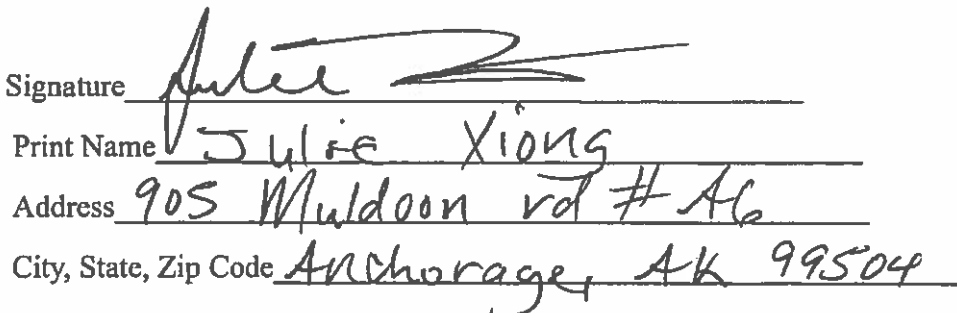 Signature Julie
Print Name Julie Xiong
Address 905 Muldoon rd # A6
City, State, Zip Code Anchorage, AK 99504